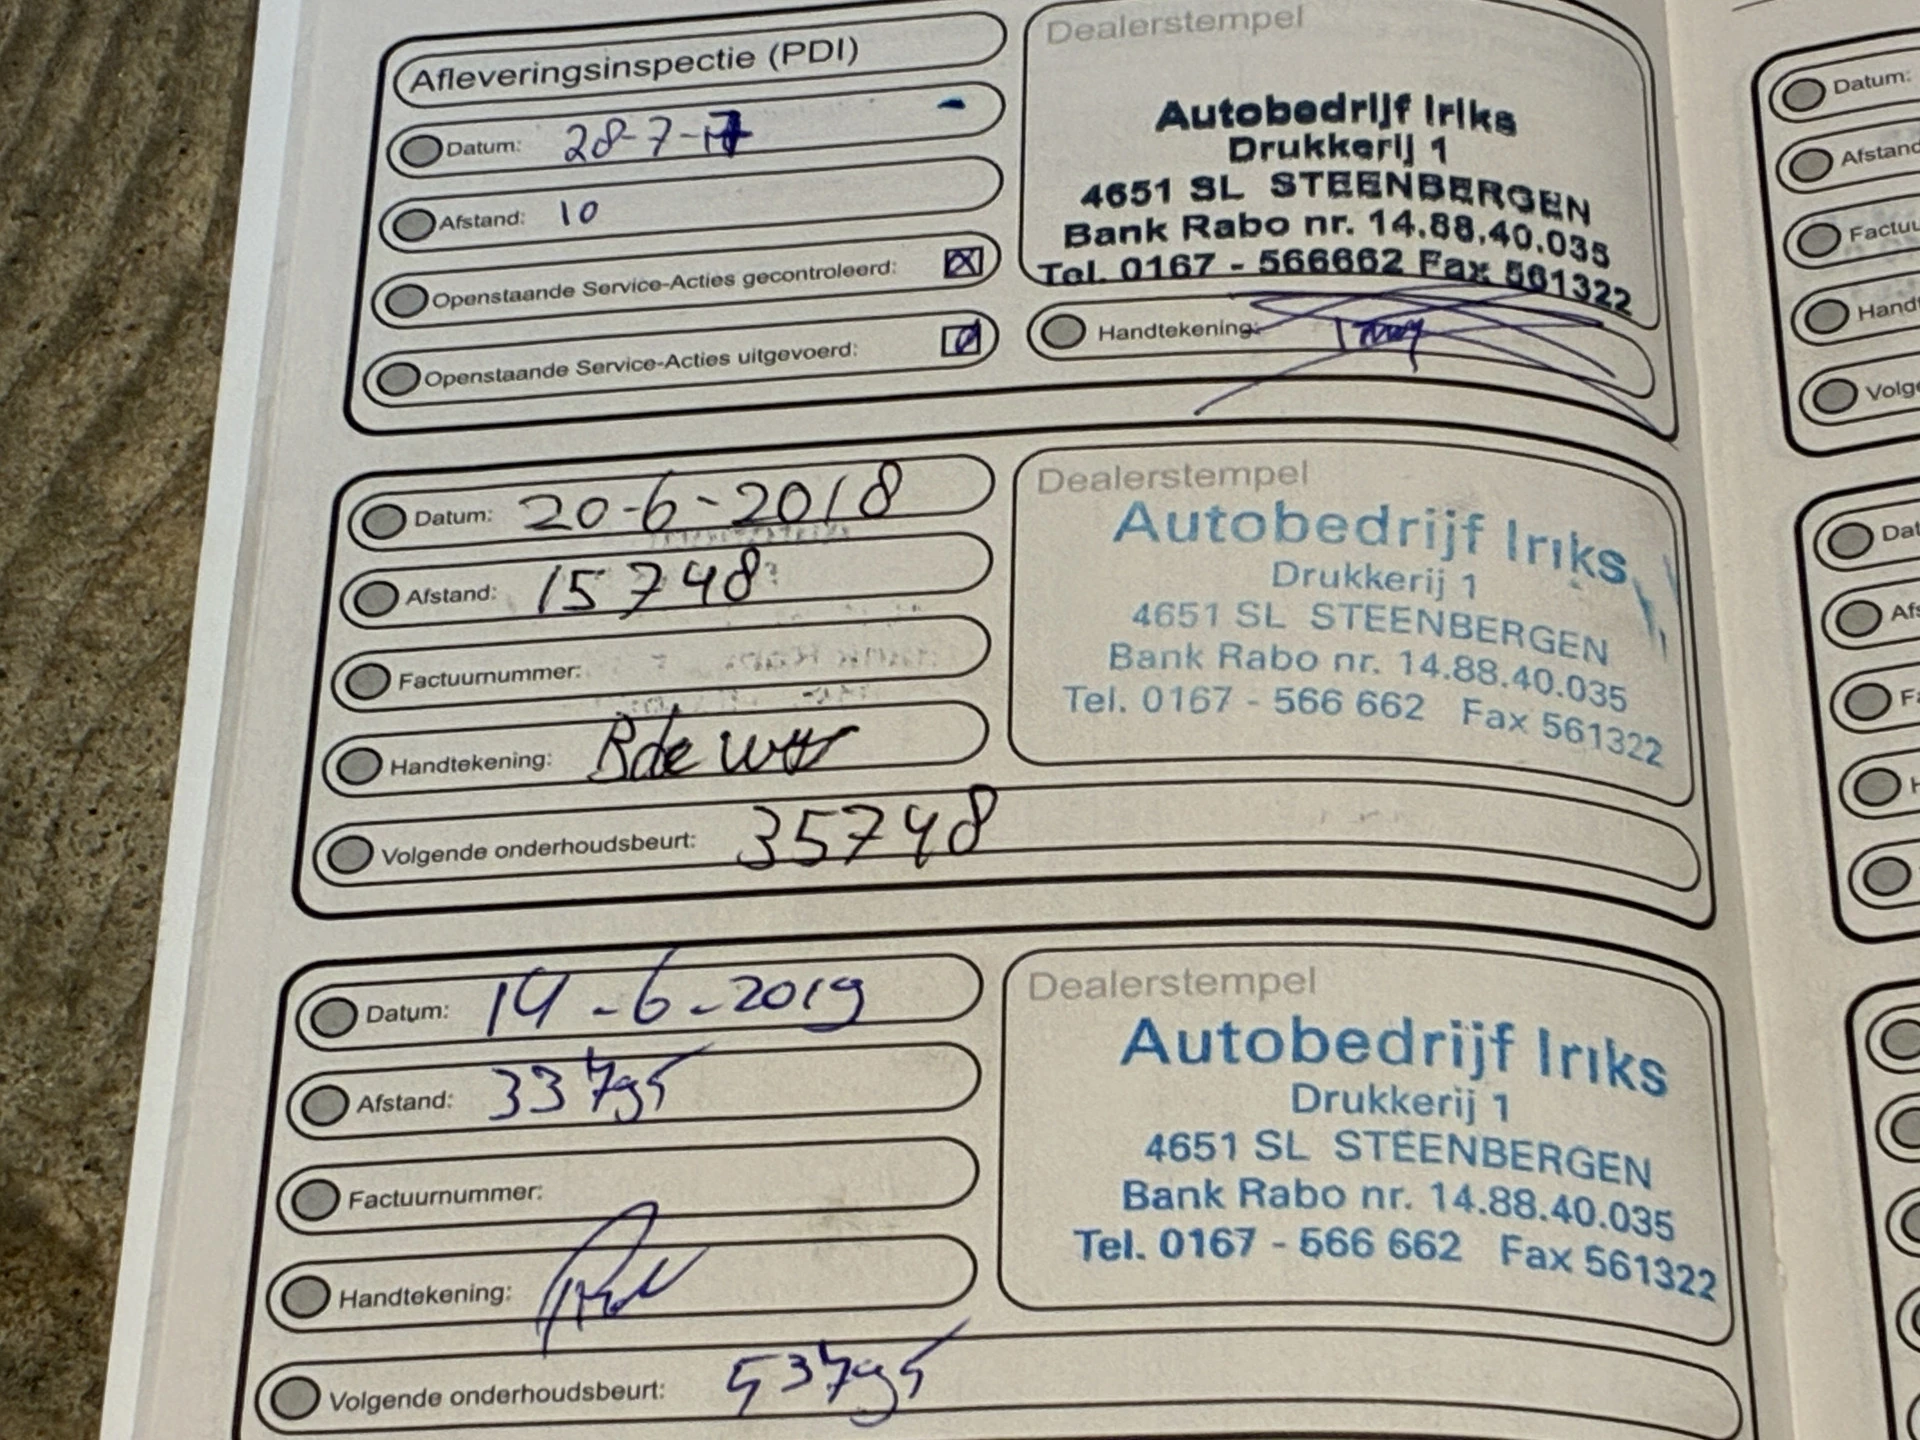 Afleveringsinspectie (PDI)
Datum: 28-7-17
Afstand: 10
Openstaande Service-Acties gecontroleerd:
Openstaande Service-Acties uitgevoerd:
Dealerstempel
Autobedrijf Iriks
Drukkerij 1
4651 SL STEENBERGEN
Bank Rabo nr. 14.88.40.035
Tel. 0167 - 566662 Fax 561322
Handtekening:
Datum: 20-6-2018
Afstand: 15748
Factuurnummer:
Handtekening:
Volgende onderhoudsbeurt: 35748
Dealerstempel
Autobedrijf Iriks
Drukkerij 1
4651 SL STEENBERGEN
Bank Rabo nr. 14.88.40.035
Tel. 0167 - 566 662 Fax 561322
Datum: 14-6-2019
Afstand: 33795
Factuurnummer:
Handtekening:
Volgende onderhoudsbeurt: 53795
Dealerstempel
Autobedrijf Iriks
Drukkerij 1
4651 SL STEENBERGEN
Bank Rabo nr. 14.88.40.035
Tel. 0167 - 566 662 Fax 561322
Datum:
Afstand